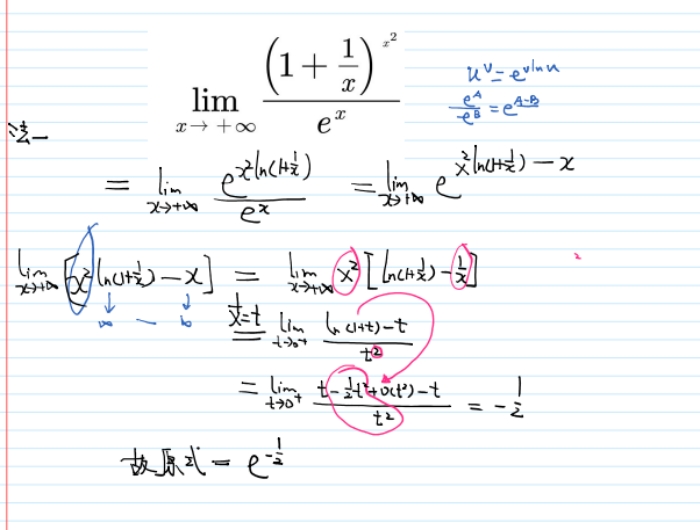 lim_{x→+∞} (1 + 1/x)^{x^2} / e^x
u^v = e^{v ln u}
e^A / e^B = e^{A-B}
法一
= lim_{x→+∞} e^{x^2 ln(1+1/x)} / e^x = lim_{x→+∞} e^{x^2 ln(1+1/x) - x}
lim_{x→+∞} [x^2 ln(1+1/x) - x] = lim_{x→+∞} x^2 [ln(1+1/x) - 1/x]
∞ - ∞
1/x = t lim_{t→0^+} (ln(1+t) - t) / t^2
= lim_{t→0^+} (t - 1/2 t^2 + o(t^2) - t) / t^2 = -1/2
故原式 = e^{-1/2}